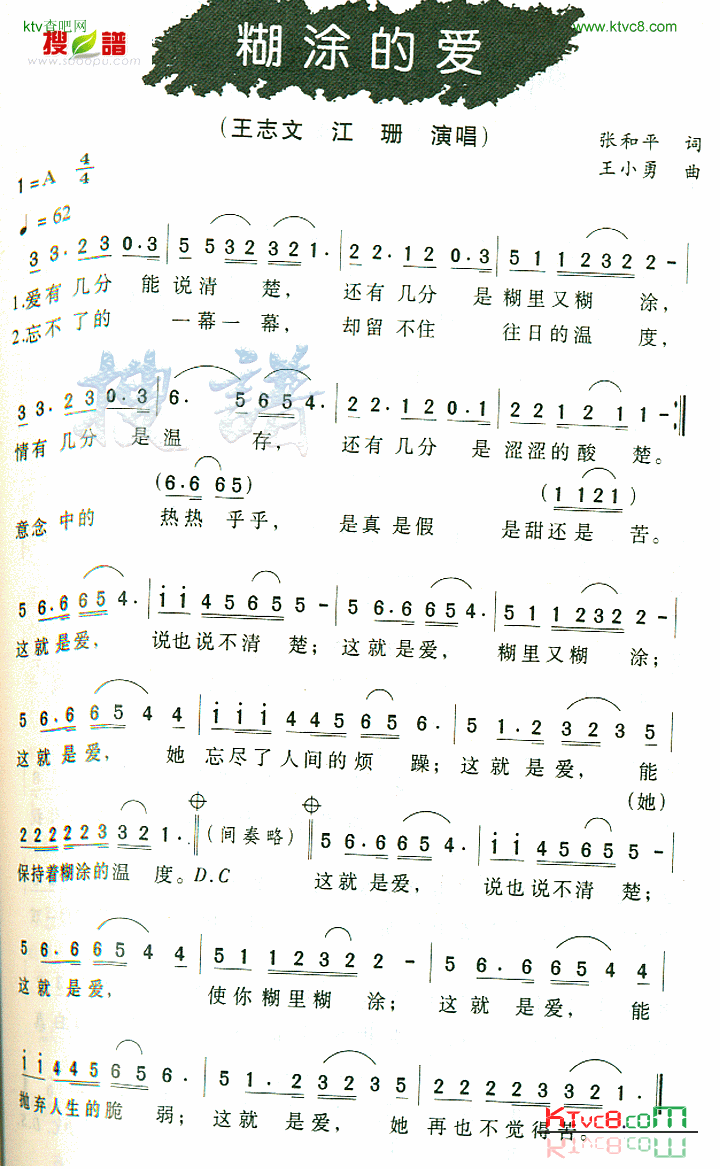 ktv查吧网
www.ktvc8.com
搜谱
www.sooopu.com
糊涂的爱
(王志文 江 珊 演唱)
张和平 词
王小勇 曲
1=A 4/4
♩=62
3 3·2 3 0·3 | 5 5 3 2 3 2 1· | 2 2·1 2 0·3 | 5 1 1 2 3 2 2 - |
1.爱有 几分 能 说清 楚, 还有 几分 是 糊里又糊 涂,
2.忘不 了的 一幕一 幕, 却留 不住 往日的温 度,
搜谱
3 3·2 3 0·3 | 6· 5 6 5 4· | 2 2·1 2 0·1 | 2 2 1 2 1 1 - :||
情有 几分 是 温 存, 还有 几分 是 涩涩的酸 楚。
(6·6 6 5) (1 1 2 1)
意念 中的 热热 乎乎, 是真 是假 是甜还是 苦。
5 6·6 6 5 4· | i i 4 5 6 5 5 - | 5 6·6 6 5 4· | 5 1 1 2 3 2 2 - |
这就 是爱, 说也说不清 楚; 这就 是爱, 糊里又糊 涂;
5 6·6 6 5 4 4 | i i i 4 4 5 6 5 6· | 5 1·2 3 2 3 5 |
这就 是爱, 她 忘尽了人间的烦 躁; 这就 是爱, 能
(她)
2 2 2 2 2 3 3 2 1· || (间奏略) || 5 6·6 6 5 4· | i i 4 5 6 5 5 - |
保持着糊涂的温 度。D.C 这就 是爱, 说也说不清 楚;
5 6·6 6 5 4 4 | 5 1 1 2 3 2 2 - | 5 6·6 6 5 4 4 |
这就 是爱, 使你糊里糊 涂; 这就 是爱, 能
i i 4 4 5 6 5 6· | 5 1·2 3 2 3 5 | 2 2 2 2 3 3 2 1· ||
抛弃人生的脆 弱; 这就 是爱, 她 再也不觉得苦。
KTvc8.com